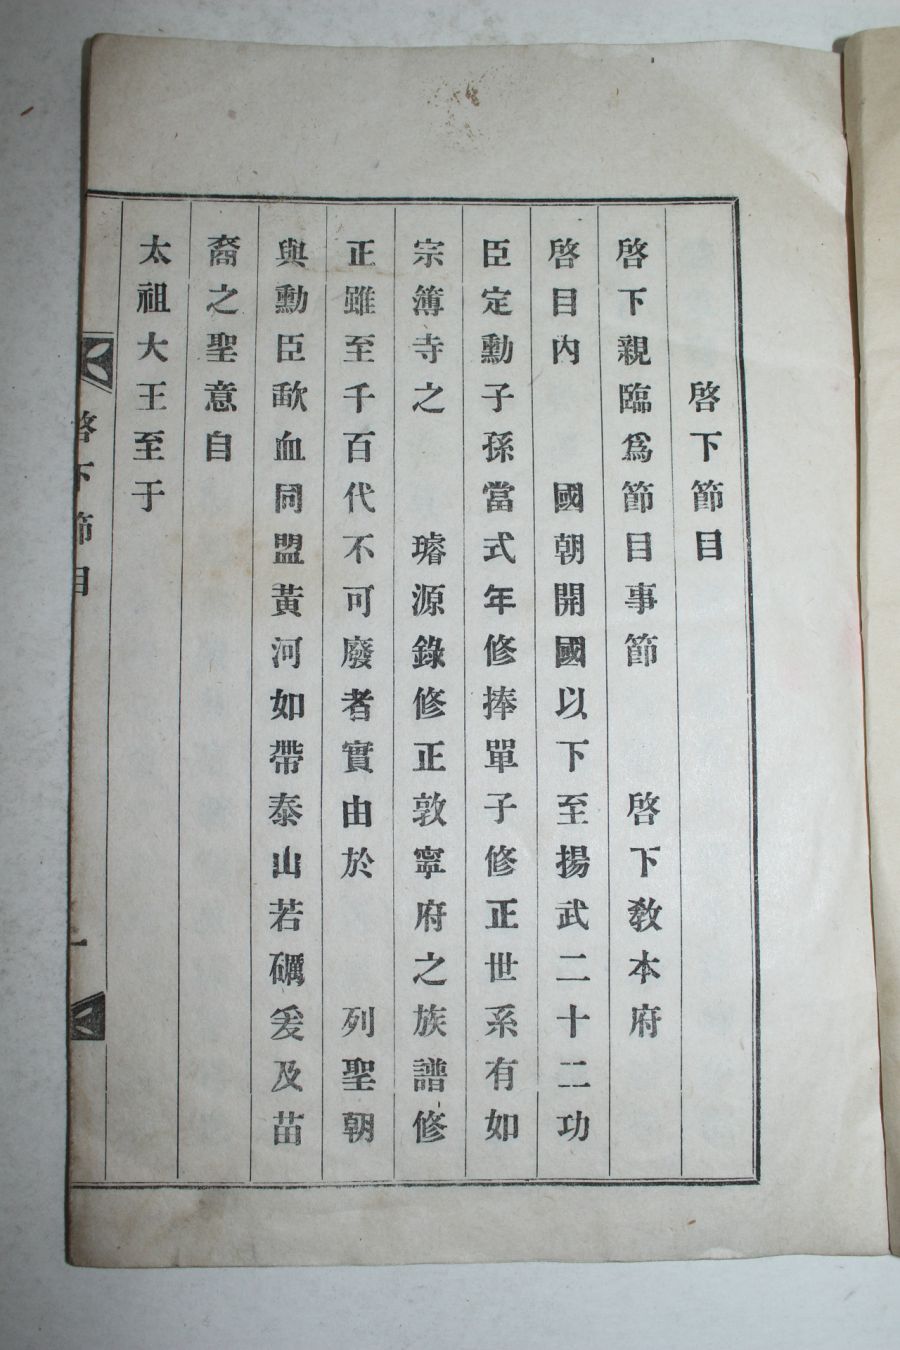 啓下節目
啓下親臨爲節目事節　啓下教本府
啓目內　國朝開國以下至揚武二十二功
臣定勳子孫當式年修捧單子修正世系有如
宗簿寺之　璿源錄修正敦寧府之族譜修
正雖至千百代不可廢者實由於　列聖朝
與勳臣歃血同盟黃河如帶泰山若礪爰及苗
裔之聖意自
太祖大王至于
啓下節目
一